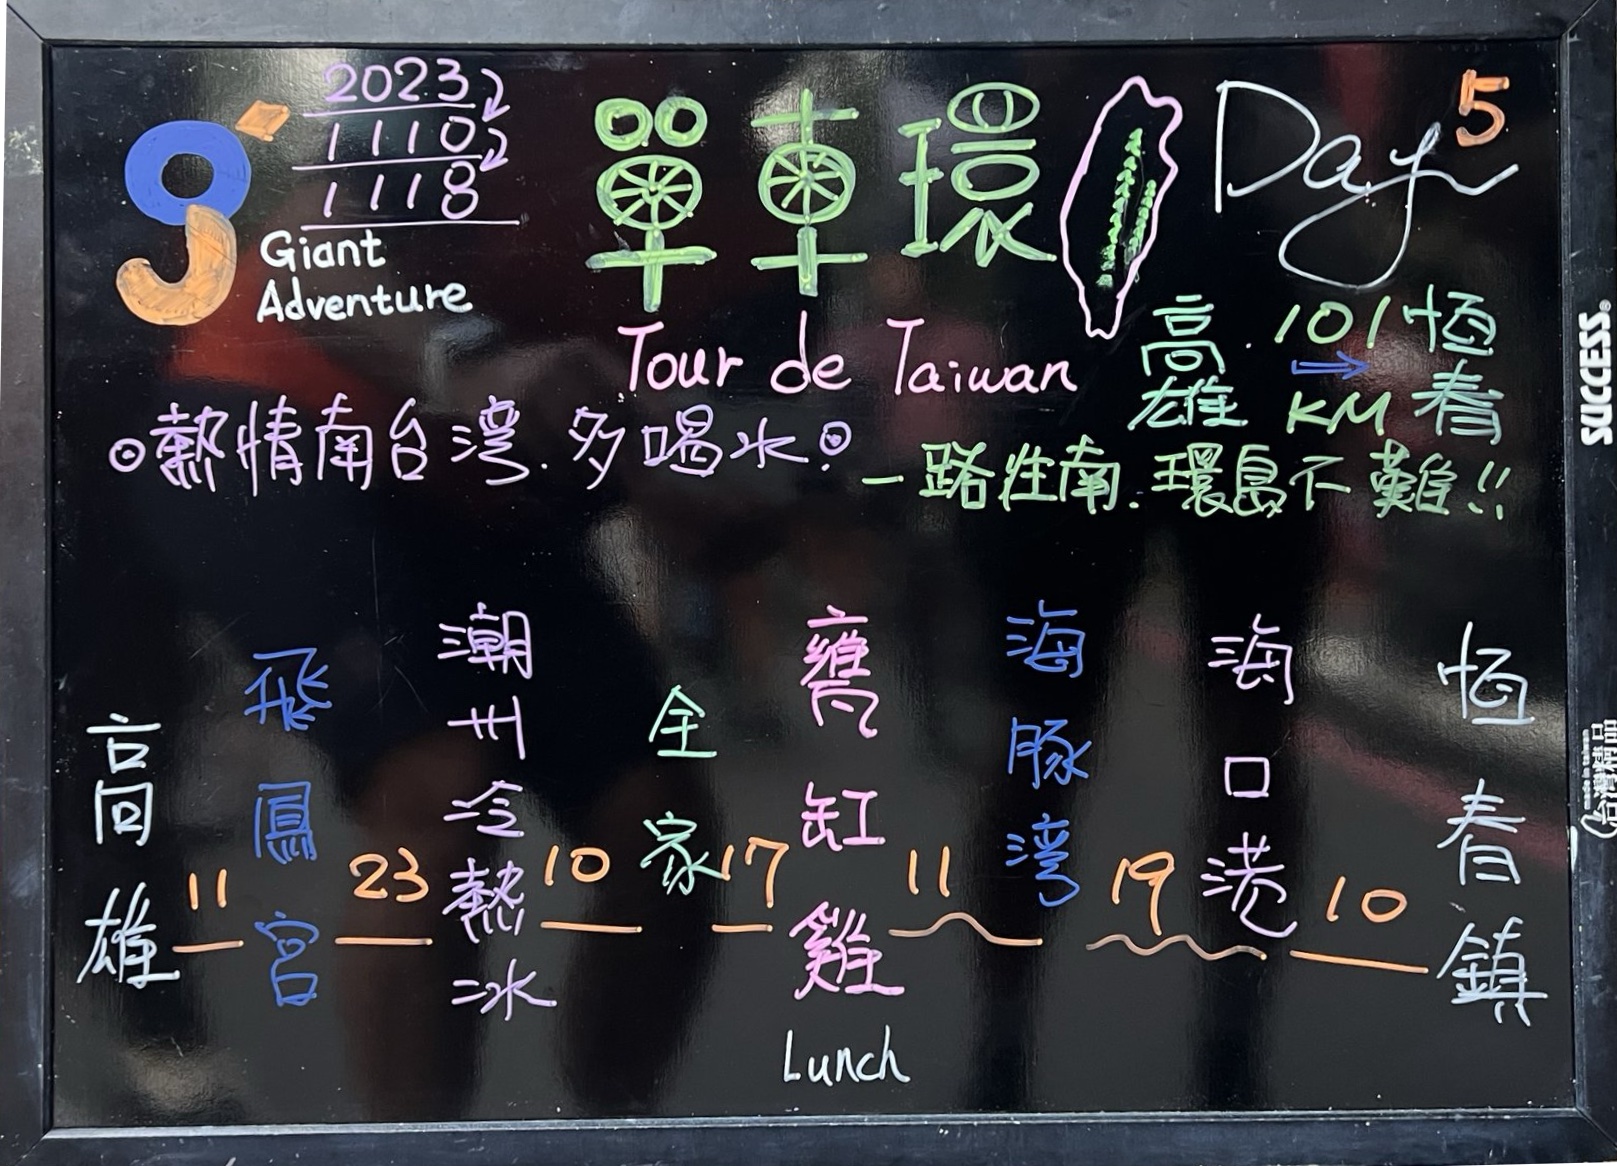 2023
1110
1118
Giant
Adventure
單車環
Day 5
Tour de Taiwan
高雄 101 KM 恒春
熱情南台湾.多喝水!
一路往南.環島不難!!
高雄
11
飛鳳宮
23
潮州冷熱冰
10
全家
17
甕缸雞
Lunch
11
海豚湾
19
海口港
10
恒春鎮
SUCCESS®
made in taiwan
台灣精品